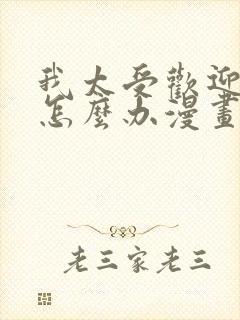 我太受歡迎
怎麼办漫畫
老三家老三